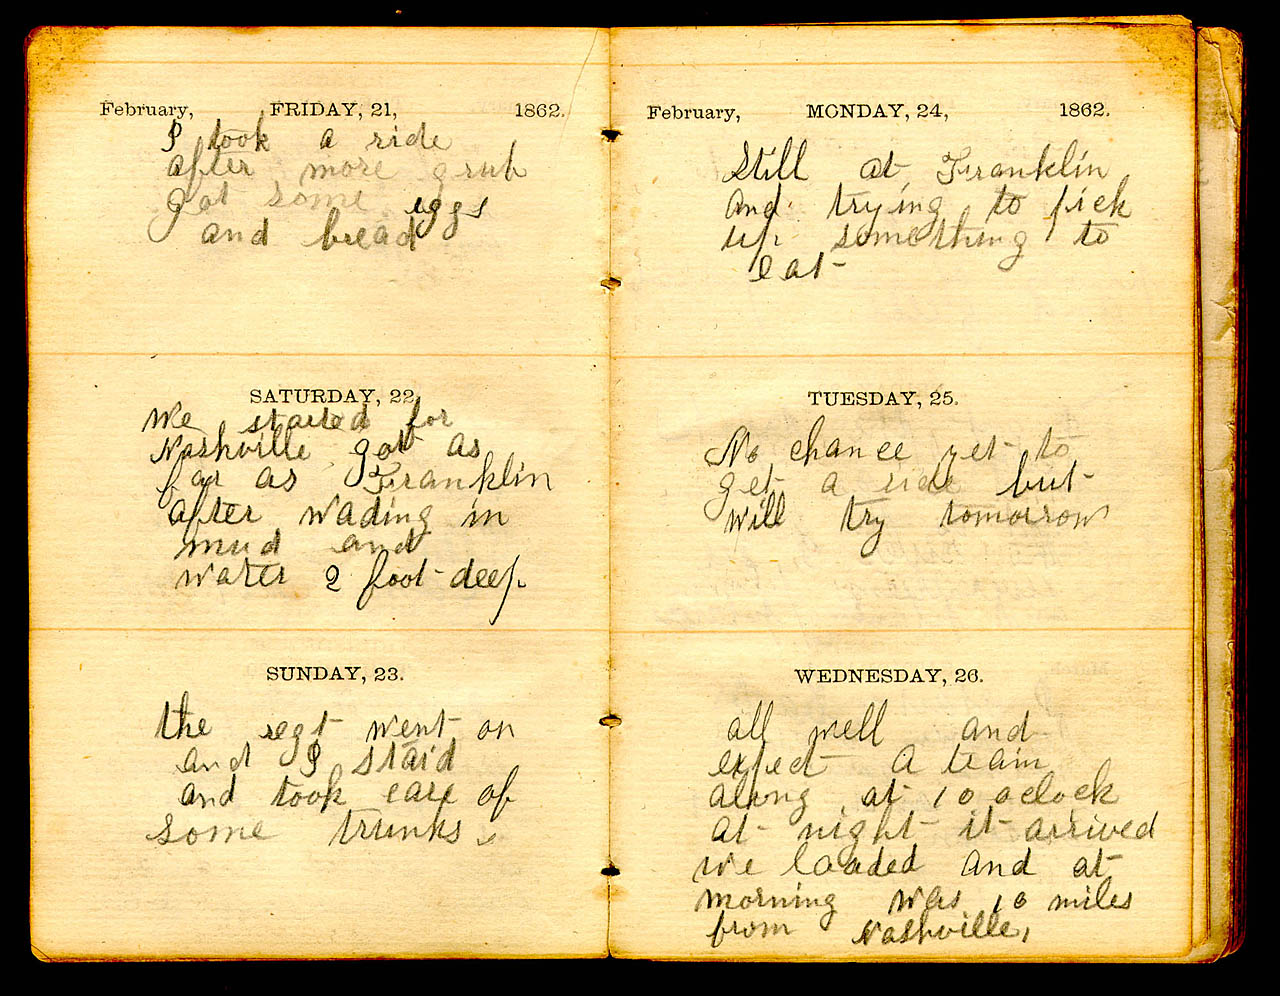 February, FRIDAY, 21, 1862.
I took a ride
after more grub
got some eggs
and bread
SATURDAY, 22.
We started for
Nashville got as
far as Franklin
after wading in
mud and
water 2 foot deep
SUNDAY, 23.
the regt went on
and I staid
and took care of
some trunks
February, MONDAY, 24, 1862.
Still at Franklin
and trying to pick
up something to
eat
TUESDAY, 25.
No chance yet to
get a ride but
will try tomorrow
WEDNESDAY, 26.
all well and
expect a team
along at 10 oclock
at night it arrived
we loaded and at
morning was 10 miles
from Nashville,